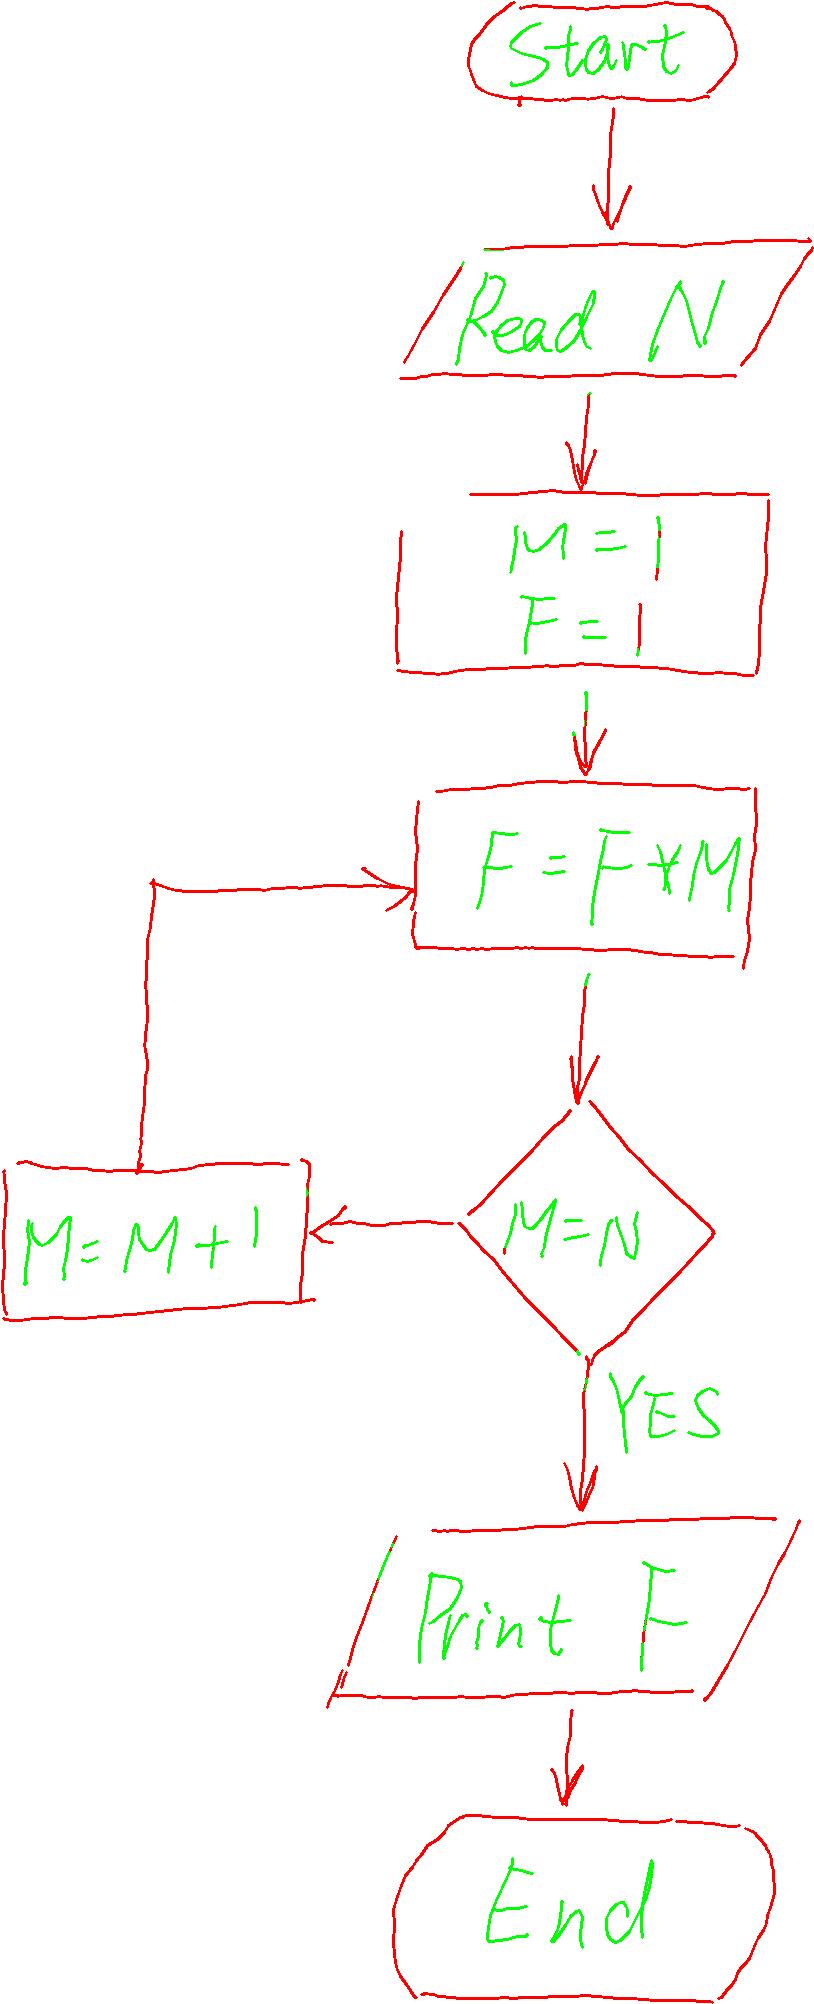 Start
Read N
M = 1
F = 1
F = F * M
M = N
M = M + 1
YES
Print F
End